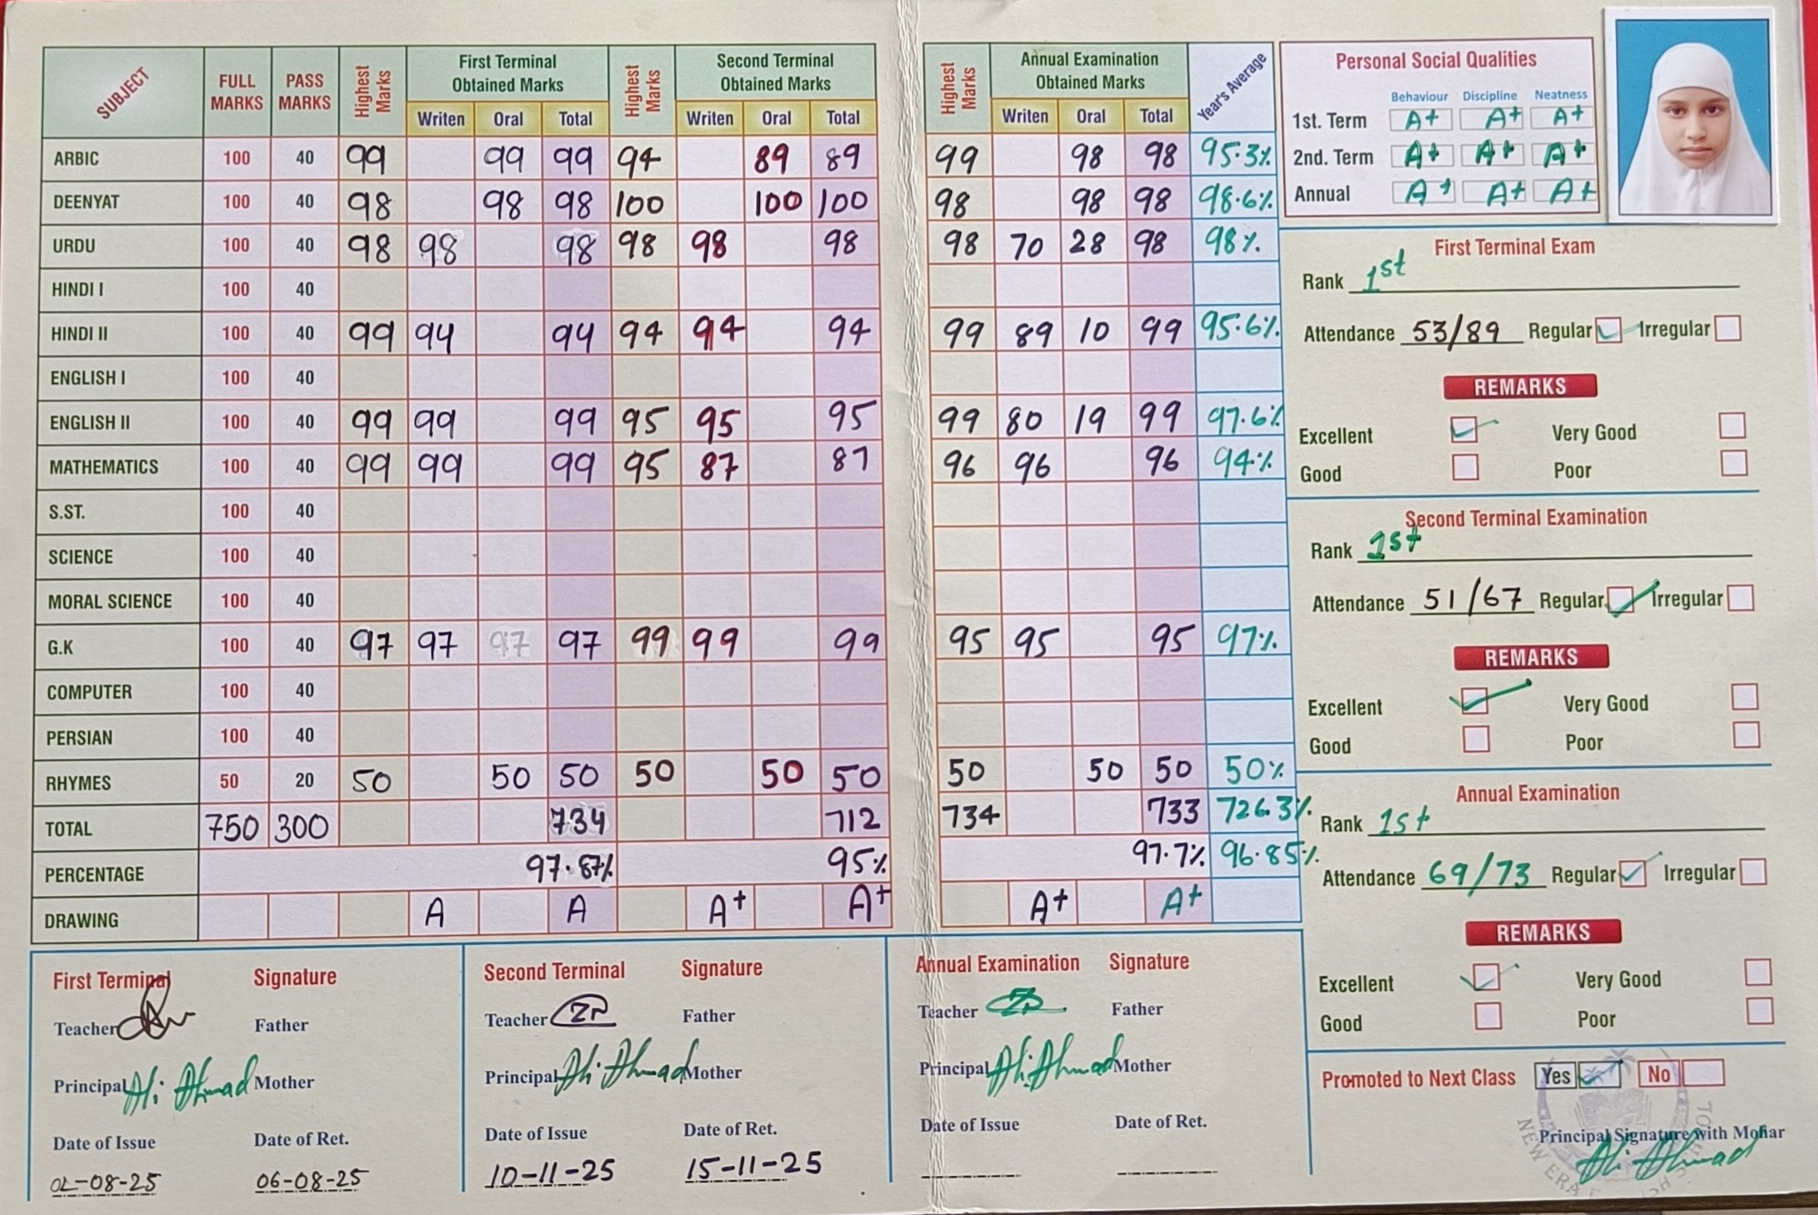 SUBJECT FULL MARKS PASS MARKS Highest Marks First Terminal Obtained Marks Highest Marks Second Terminal Obtained Marks Highest Marks Annual Examination Obtained Marks Year's Average
Writen Oral Total Writen Oral Total Writen Oral Total
ARBIC 100 40 99 99 99 94 89 89 99 98 98 95.3%
DEENYAT 100 40 98 98 98 100 100 100 98 98 98 98.6%
URDU 100 40 98 98 98 98 98 98 98 70 28 98 98%
HINDI I 100 40
HINDI II 100 40 99 94 94 94 94 94 99 89 10 99 95.6%
ENGLISH I 100 40
ENGLISH II 100 40 99 99 99 95 95 95 99 80 19 99 97.6%
MATHEMATICS 100 40 99 99 99 95 87 87 96 96 96 94%
S.ST. 100 40
SCIENCE 100 40
MORAL SCIENCE 100 40
G.K 100 40 97 97 97 97 99 99 99 95 95 95 97%
COMPUTER 100 40
PERSIAN 100 40
RHYMES 50 20 50 50 50 50 50 50 50 50 50 50%
TOTAL 750 300 734 712 734 733 726.3%
PERCENTAGE 97.87% 95% 97.7% 96.85%
DRAWING A A A+ A+ A+ A+
First Terminal Signature
Teacher Father
Principal Ali Ahmad Mother
Date of Issue Date of Ret.
-08-25 06-08-25
Second Terminal Signature
Teacher ZN Father
Principal Ali Ahmad Mother
Date of Issue Date of Ret.
10-11-25 15-11-25
Annual Examination Signature
Teacher Father
Principal Ali Ahmad Mother
Date of Issue Date of Ret.
Personal Social Qualities
Behaviour Discipline Neatness
1st. Term A+ A+ A+
2nd. Term A+ A+ A+
Annual A+ A+ A+
First Terminal Exam
Rank 1st
Attendance 53/89 Regular Irregular
REMARKS
Excellent Very Good
Good Poor
Second Terminal Examination
Rank 1st
Attendance 51/67 Regular Irregular
REMARKS
Excellent Very Good
Good Poor
Annual Examination
Rank 1st
Attendance 69/73 Regular Irregular
REMARKS
Excellent Very Good
Good Poor
Promoted to Next Class Yes No
Principal Signature with Mohar
Ali Ahmad
NEW ERA